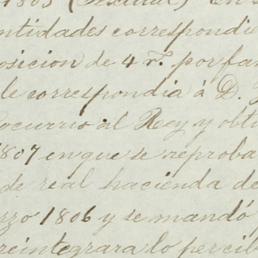 1805 (
ntidades correspondie
osicion de 4 r.s por fan
le correspondia á D.
ocurrio al Rey y obtu
1807 en que se reproba
de real hacienda de
rzo 1806 y se mandó
reintegrara lo percib